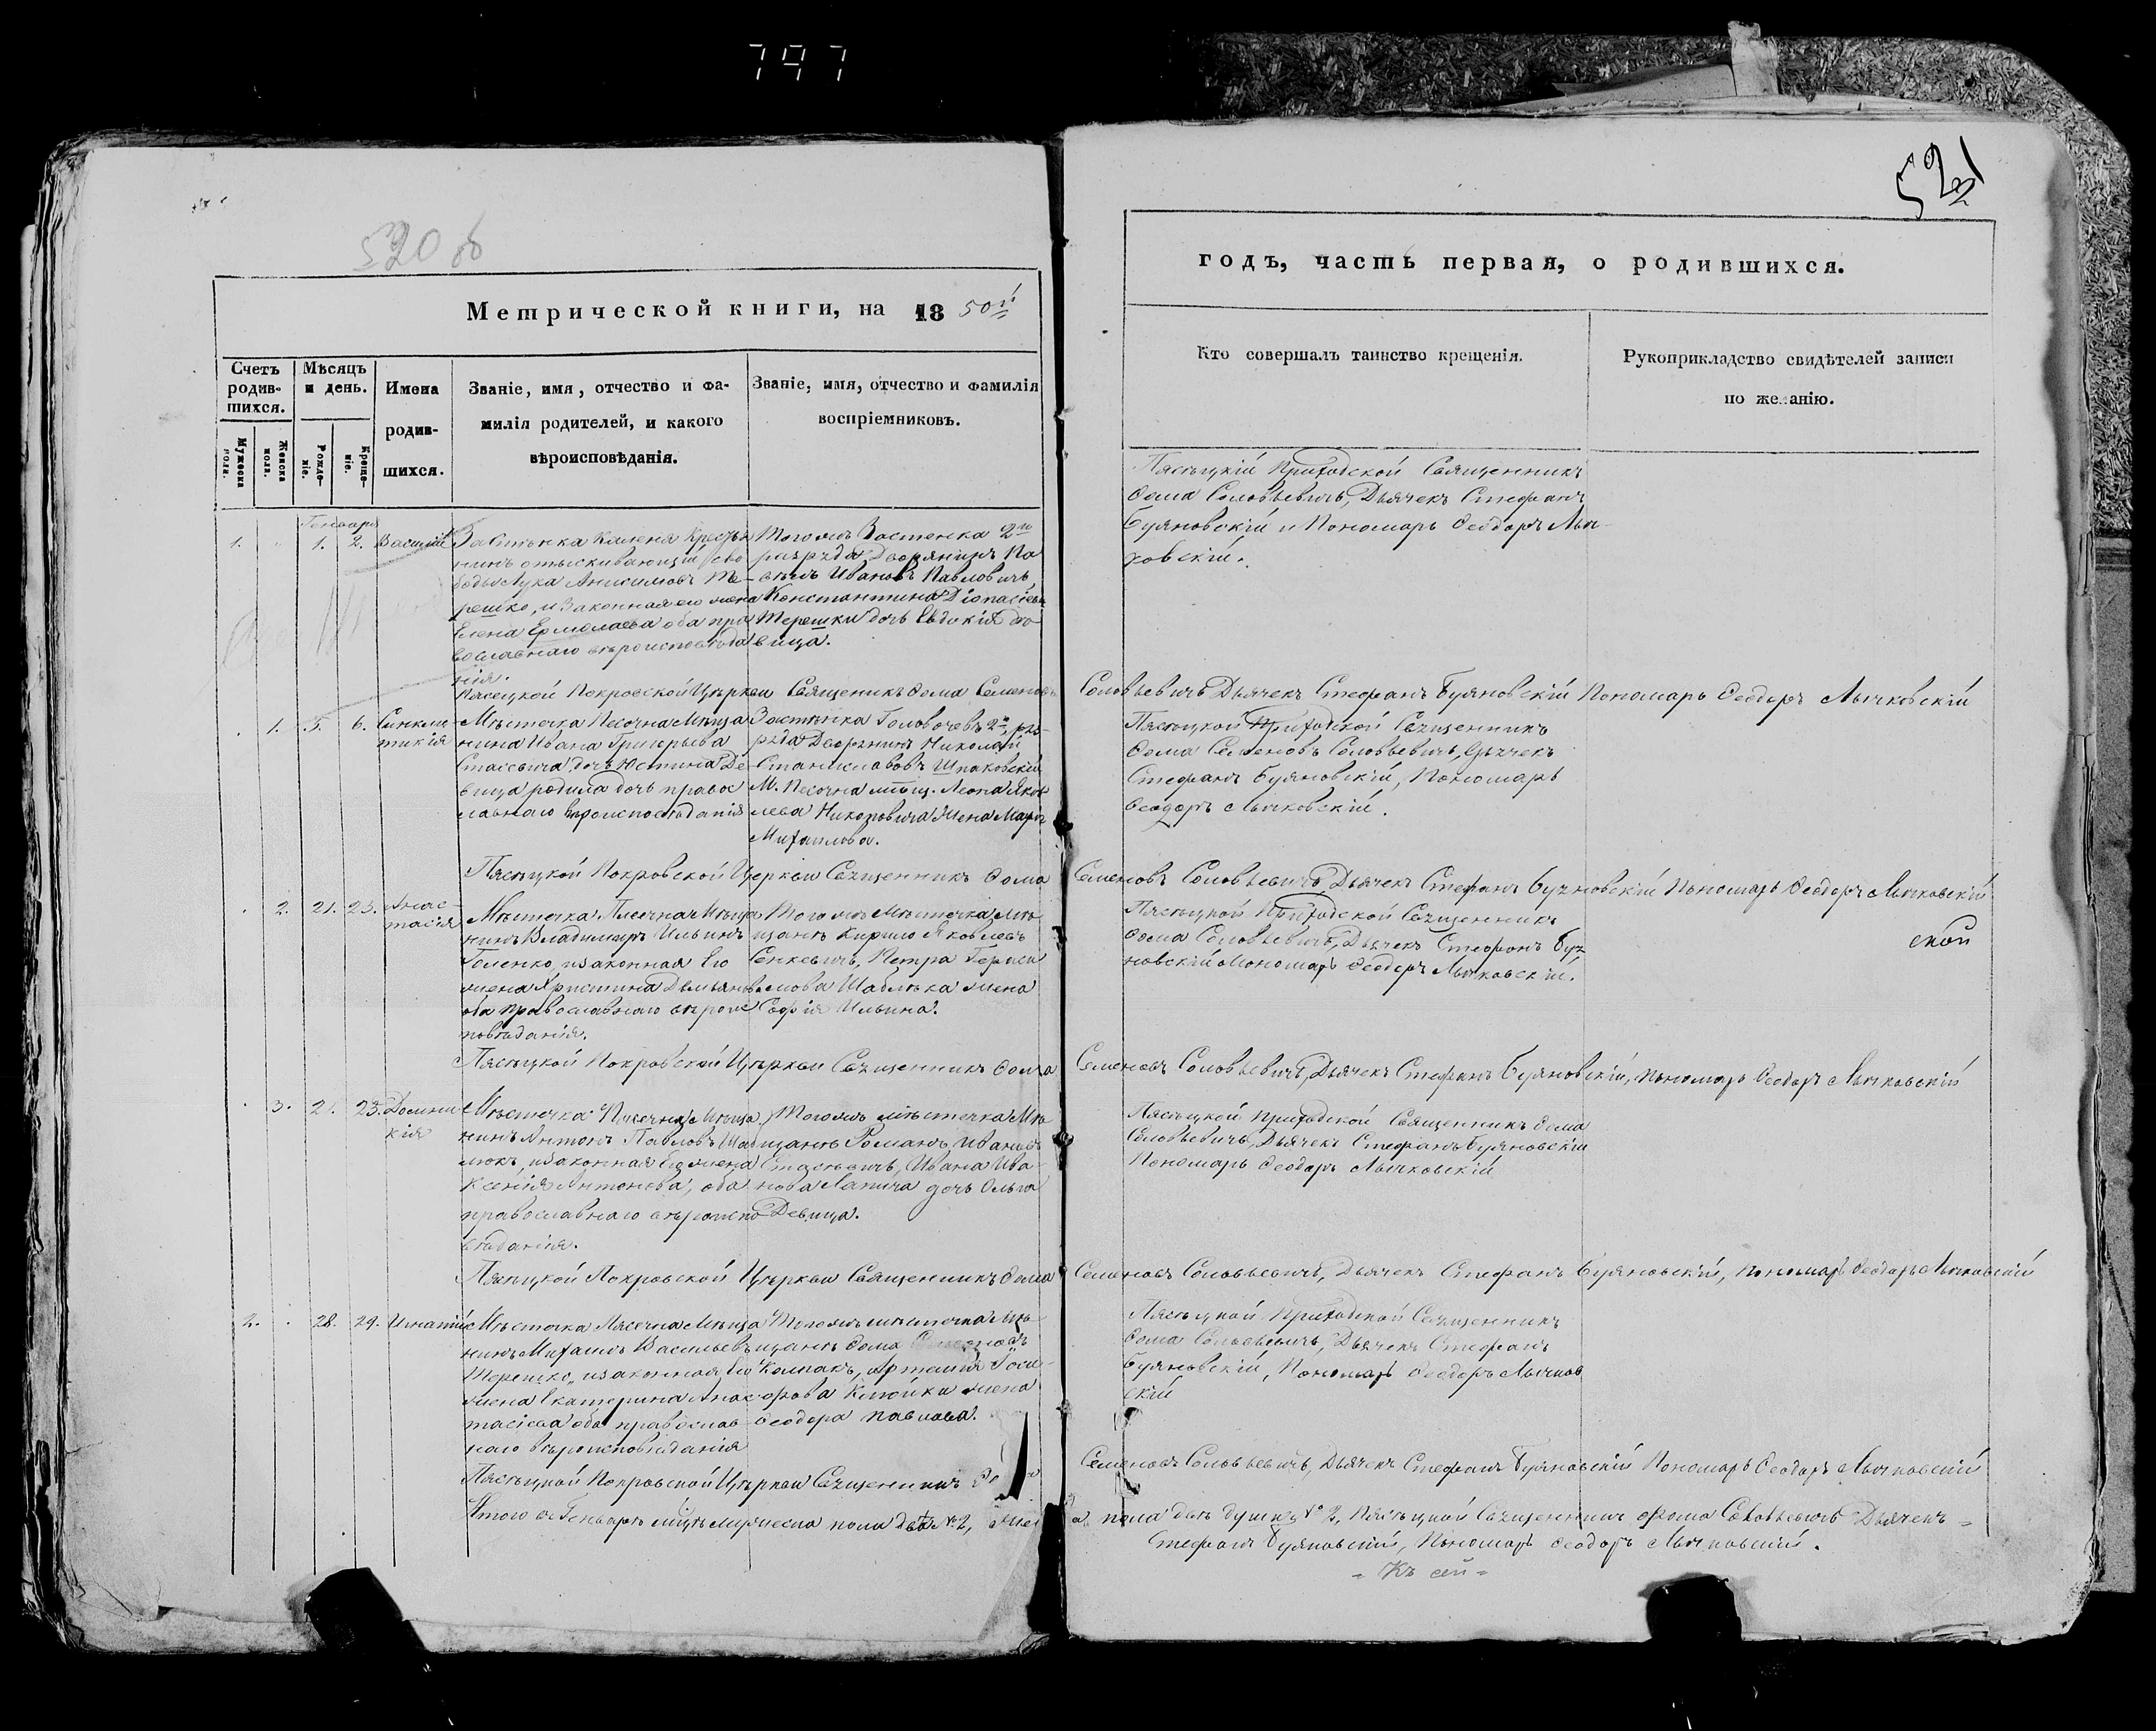 797
520 об
521
Метрической книги, на 1850й
годъ, часть первая, о родившихся.
Счетъ родив-шихся.
Мужеска пола.
Женска пола.
Мѣсяцъ и день.
Рожде-ніе.
Креще-ніе.
Имена родив-шихся.
Званіе, имя, отчество и фа-
милія родителей, и какого
вѣроисповѣданія.
Званіе, имя, отчество и фамилія
воспріемниковъ.
Кто совершалъ таинство крещенія.
Рукоприкладство свидѣтелей записи
по желанію.
Генваря
1. 1. 2. Василій
Застѣнка Каменя Крестья
нинъ отыскивающій сво
боды Лука Анисимовъ Те-
решко, и законная его жена
Елена Ермолаева оба пра
вославнаго вѣроисповѣда
нія.
Тогожъ Застенка 2го
разряда Дворянинъ Па
велъ Ивановъ Павловичъ,
Константина
Терешки дочь Евдокія дѣ
вица.
Пясѣцкій Приходской Священникъ
Ѳома Соловьевичъ, Дьячекъ Стефанъ
Буяновскій и Пономарь Ѳеодоръ Лыч
ковскій.
Пясецкой Покровской Цѣркви Священикъ Ѳома Семеновъ Соловьевичъ Дьячекъ Стефанъ Буяновскій Пономарь Ѳеодоръ Лычковскій
1. 5. 6. Синкли-
тикія
Мѣстечка Песочна Мѣща
нина Ивана Григорьева
Стасевича дочь Юстина Де-
вица родила дочь правос
лавнаго вѣроисповѣданія
Застѣнка Головочевъ 2го раз-
ряда Дворянинъ Николай
Станиславовъ Шпаковскій
М. Песочна мѣщ. Леона Яков
лева Никоровича жена Марія
Михайлова.
Пясецкой Приходской Священникъ
Ѳома Семеновъ Соловьевичъ, Дьячекъ
Стефанъ Буяновскій, Пономарь
Ѳеодоръ Лычковскій.
Пясѣцкой Покровской Церкви Священникъ Ѳома Семеновъ Соловьевичъ, Дьячекъ Стефанъ Буяновскій Пономарь Ѳеодоръ Лычковскій
2. 21. 23. Анас-
тасія
Мѣстечка Песочна Мѣща
нинъ Владимиръ Ильинъ
Голенко, и законная Его
жена Христина Демьянова
оба православнаго вѣроис
повѣданія.
Тогожъ Мѣстечка Мѣ
щанъ Кирило Яковлевъ
Сенкевичъ, Петра Гераси
мова Шаблюка жена
Софія Ильина.
Пясѣцкой Приходской Священникъ
Ѳома Соловьевичъ, Дьячекъ Стефанъ Буя
новскій Пономарь Ѳеодоръ Лычковскій.
ской
Пясѣцкой Покровской Цѣркви Священникъ Ѳома Семеновъ Соловьевичъ, Дьячекъ Стефанъ Буяновскій, Пономарь Ѳеодоръ Лычковскій
3. 21. 23. Домни
кія
Мѣстечка Песочна Мѣща
нинъ Антонъ Павловъ Шаб
люкъ, и законная Его жена
Ксенія Антонова, оба
православнаго вѣроиспо
вѣданія.
Тогожъ мѣстечка Мѣ
щанъ Романъ Ивановъ
Стасевичъ, Ивана Ива
нова Лапича дочь Ольга
Девица.
Пясѣцкой Приходской Священникъ Ѳома
Соловьевичъ, Дьячекъ Стефанъ Буяновскій
Пономарь Ѳеодоръ Лычковскій
Пясѣцкой Покровской Цѣркви Священникъ Ѳома Семеновъ Соловьевичъ, Дьячекъ Стефанъ Буяновскій, Пономарь Ѳеодоръ Лычковскій
2. 28. 29. Игнатій
Мѣстечка Песочна Мѣща
нинъ Михаилъ Васильевъ
Терешко, и законная Его
жена Екатерина Анас-
тасіева оба православ
наго вѣроисповѣданія
Тогожъ мѣстечка Мѣ-
щанъ Ѳома
Колпакъ, Артемія
жена
Ѳеодора Павлова.
Пясѣцкой Приходской Священникъ
Ѳома Соловьевичъ, Дьячекъ Стефанъ
Буяновскій, Пономарь Ѳеодоръ Лычков
скій
Пясѣцкой Покровской Цѣркви Священникъ Семеновъ Соловьевичъ, Дьячекъ Стефанъ Буяновскій Пономарь Ѳеодоръ Лычковскій
Итого въ Генварѣ мцѣ мужеска пола двѣ № 2, пола двѣ души № 2, Пясѣцкой Священникъ Ѳома Соловьевичъ Дьячекъ
Стефанъ Буяновскій, Пономарь Ѳеодоръ Лычковскій.
= Къ сей =